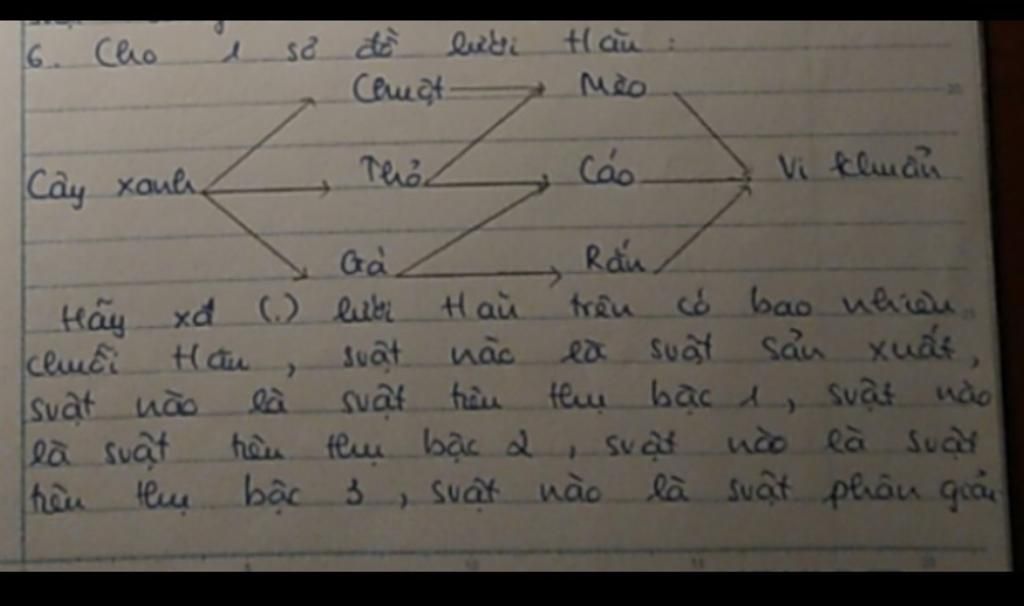 6. Cho 1 sơ đồ lưới t/ăn :
Chuột Mèo
Cây xanh Thỏ Cáo Vi khuẩn
Gà Rắn
Hãy xđ (.) lưới t/ăn trên có bao nhiêu
chuỗi t/ăn, svật nào là svật sản xuất,
svật nào là svật tiêu thụ bậc 1, svật nào
là svật tiêu thụ bậc 2, svật nào là svật
tiêu thụ bậc 3, svật nào là svật phân giải